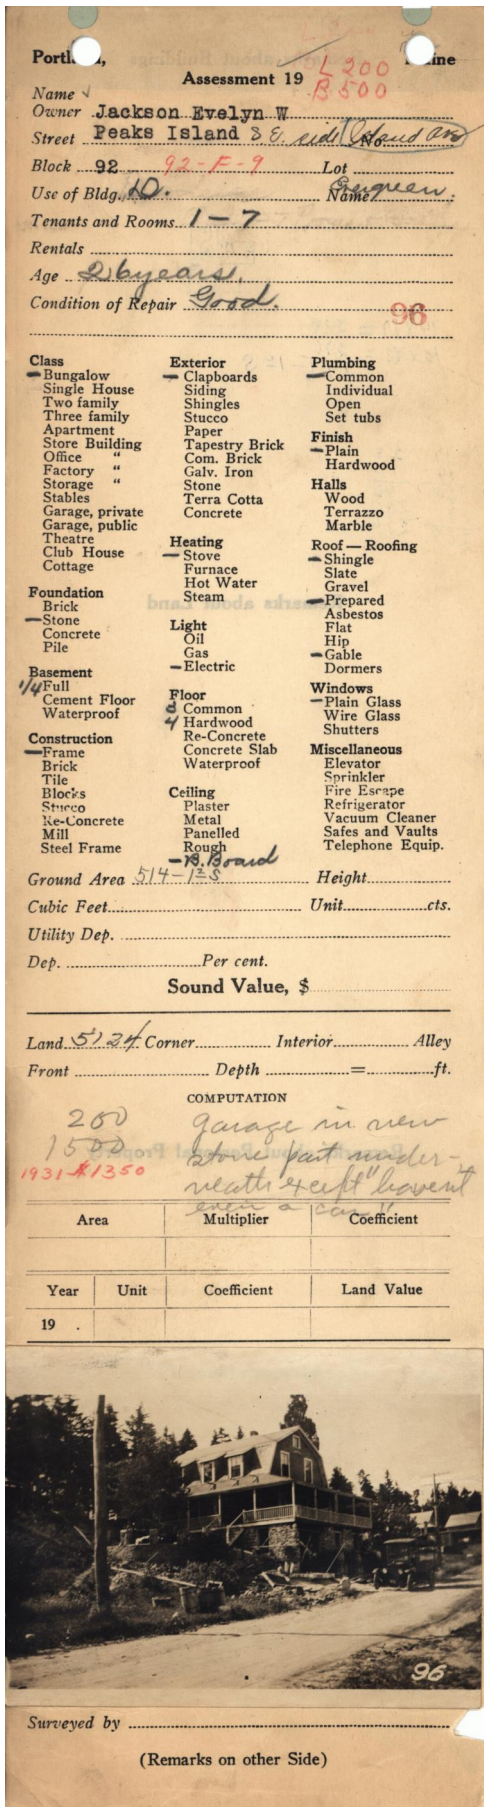 Portl , ine
Assessment 19
L 200
B 500
Name
Owner Jackson Evelyn W
Street Peaks Island S E. side Island ave No.
Block 92 92-F-9 Lot
Use of Bldg. D. Name Evergreen.
Tenants and Rooms 1-7
Rentals
Age 26 years.
Condition of Repair Good.
96
Class
Bungalow
Single House
Two family
Three family
Apartment
Store Building
Office "
Factory "
Storage "
Stables
Garage, private
Garage, public
Theatre
Club House
Cottage
Foundation
Brick
Stone
Concrete
Pile
Basement
1/4 Full
Cement Floor
Waterproof
Construction
Frame
Brick
Tile
Blocks
Stucco
Re-Concrete
Mill
Steel Frame
Exterior
Clapboards
Siding
Shingles
Stucco
Paper
Tapestry Brick
Com. Brick
Galv. Iron
Stone
Terra Cotta
Concrete
Heating
Stove
Furnace
Hot Water
Steam
Light
Oil
Gas
Electric
Floor
3 Common
4 Hardwood
Re-Concrete
Concrete Slab
Waterproof
Ceiling
Plaster
Metal
Panelled
Rough
B. Board
Plumbing
Common
Individual
Open
Set tubs
Finish
Plain
Hardwood
Halls
Wood
Terrazzo
Marble
Roof — Roofing
Shingle
Slate
Gravel
Prepared
Asbestos
Flat
Hip
Gable
Dormers
Windows
Plain Glass
Wire Glass
Shutters
Miscellaneous
Elevator
Sprinkler
Fire Escape
Refrigerator
Vacuum Cleaner
Safes and Vaults
Telephone Equip.
Ground Area 514-1 2 S Height
Cubic Feet Unit cts.
Utility Dep.
Dep. Per cent.
Sound Value, $
Land 5124 Corner Interior Alley
Front Depth = ft.
COMPUTATION
200
1500
1931-$1350
Garage in new
stone part under-
neath except "havent
even a car"
Area Multiplier Coefficient
Year Unit Coefficient Land Value
19 .
96
Surveyed by
(Remarks on other Side)